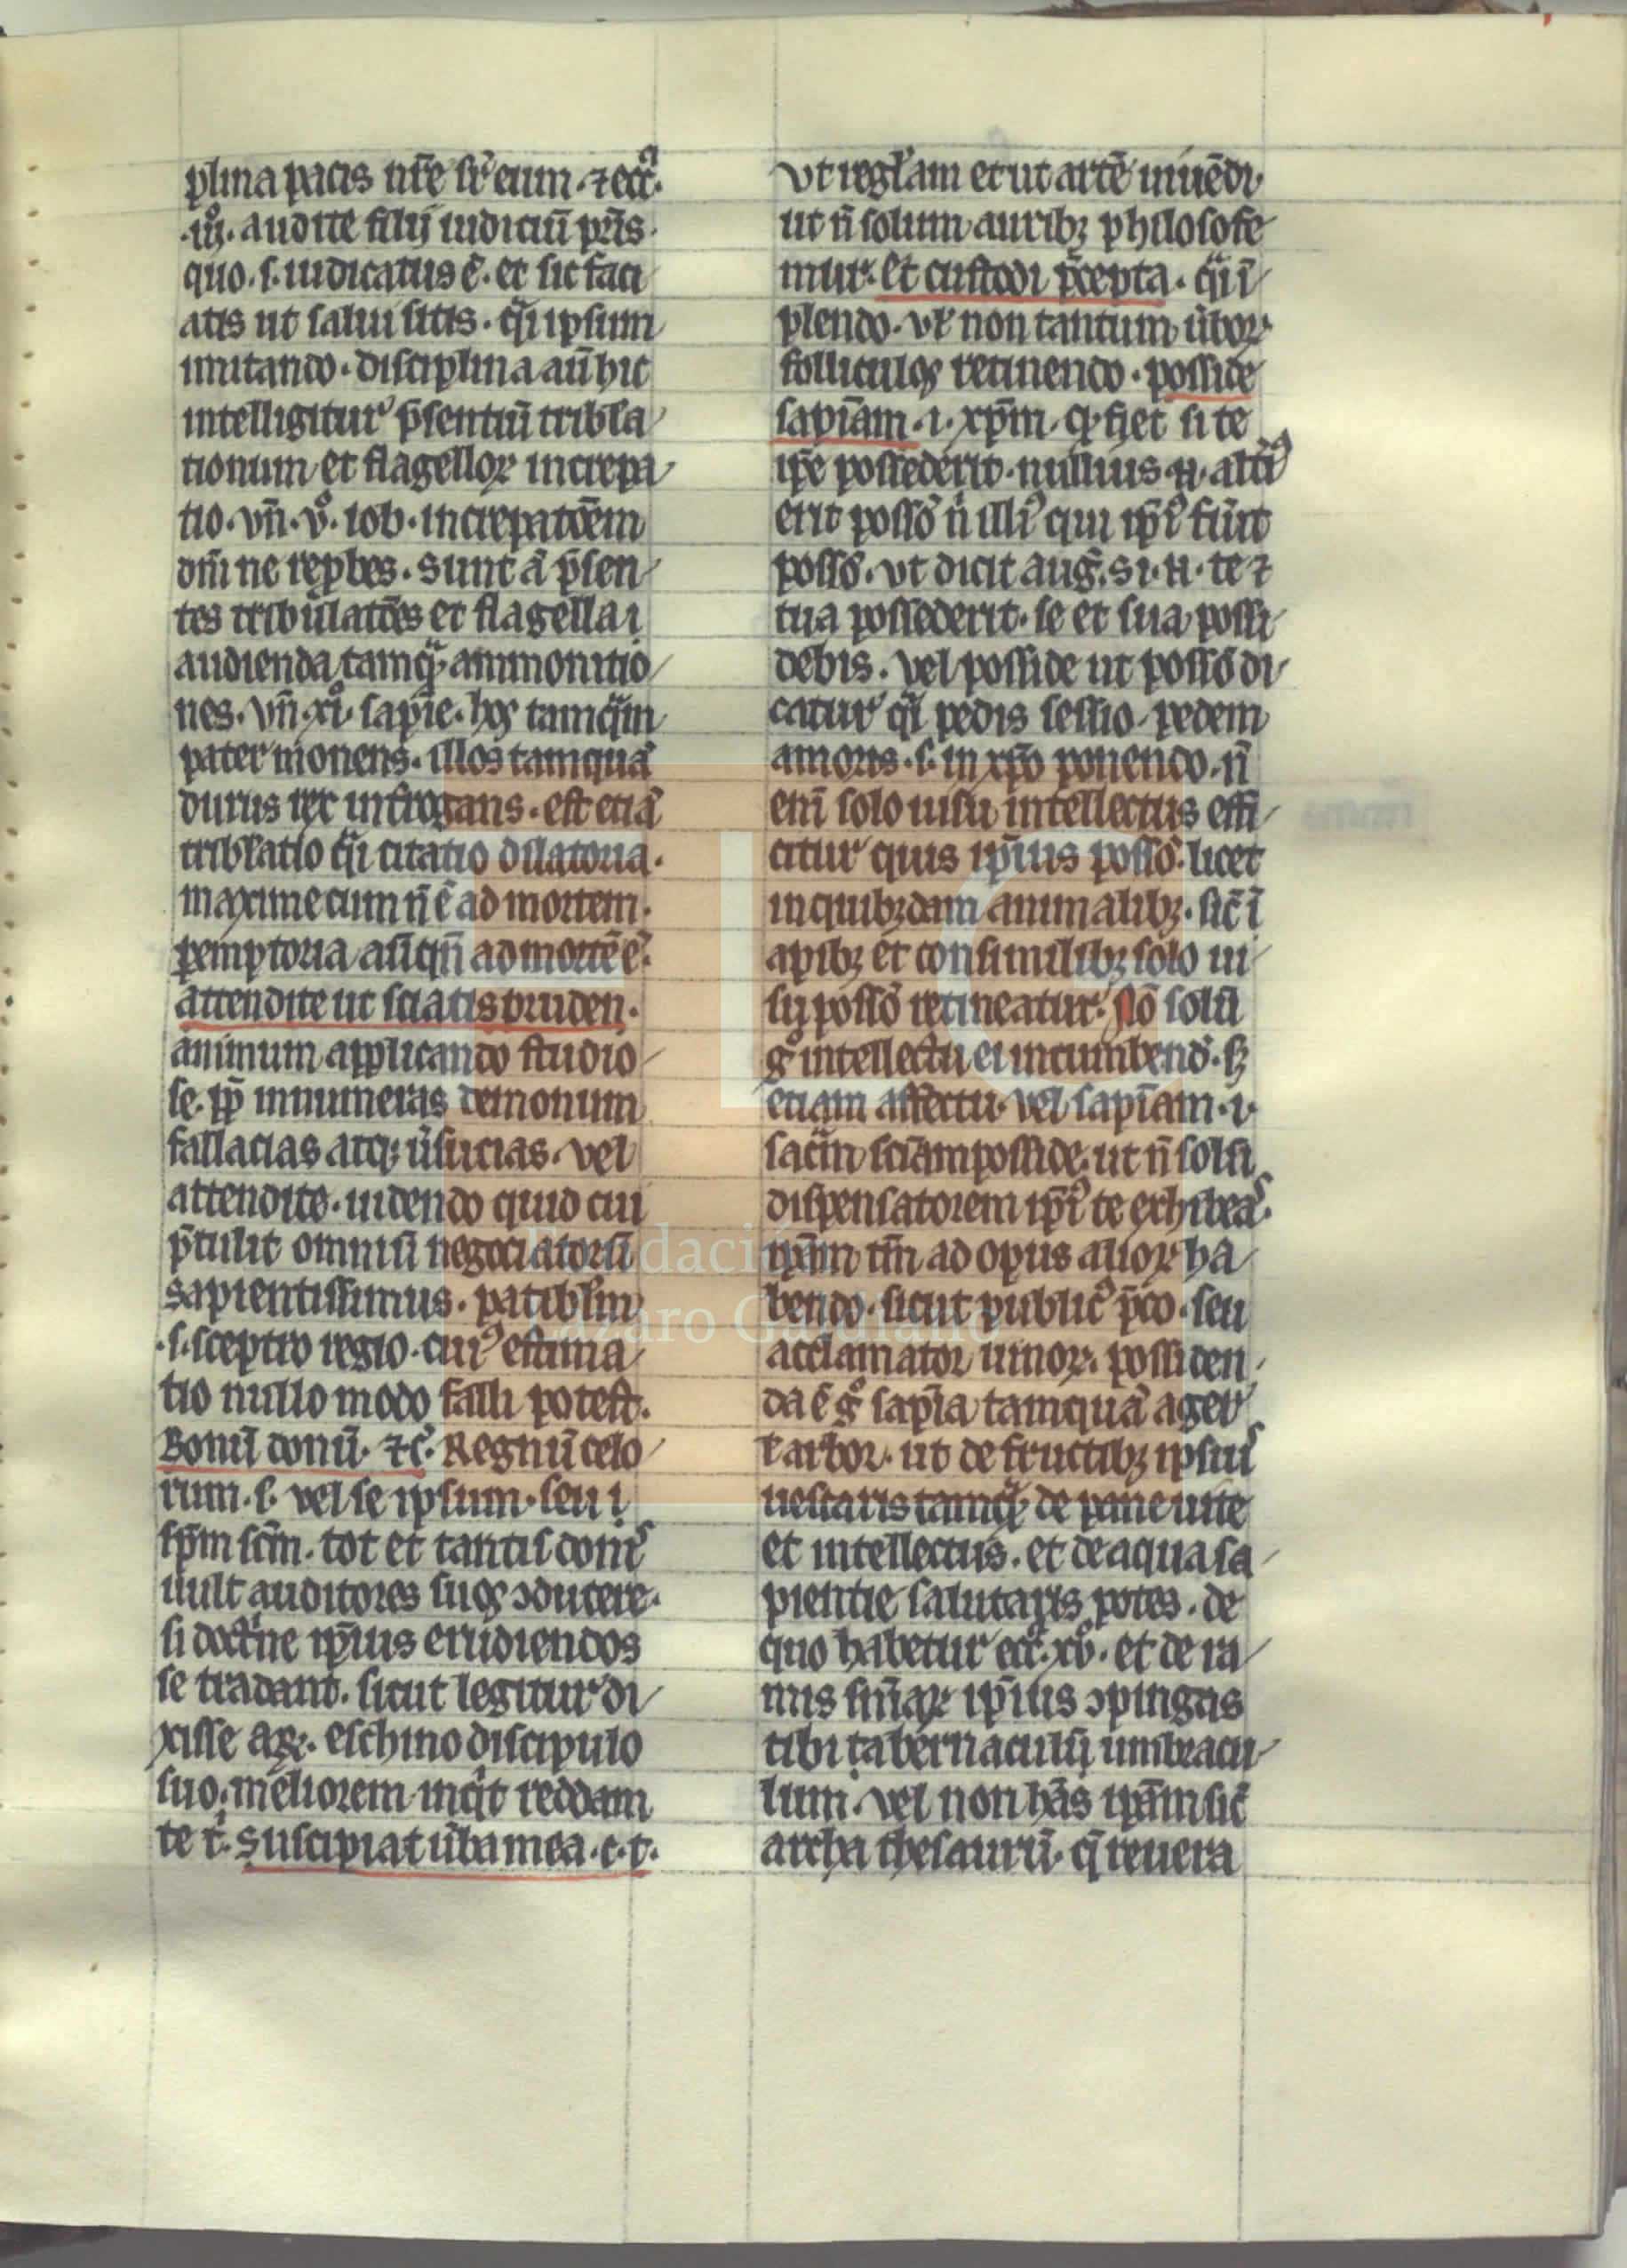 plina pacis nr̄e sr̄ eum. ⁊ ecc̄ᵃ.
.iijº. audite filij iudiciū pr̄is.
quo. s. iudicatus ē. et sic faci
atis ut salui sitis. q̄i ipsum
imitando. disciplina aū hic
intelligitur p̄sentiū tribl̄a
tionum et flagelloꝝ increpa
tio. vn̄. vº. iob. increpatōem
dn̄i ne rep̄bes. sunt ā p̄sen
tes tribulatōes et flagella i
audienda tamq̄ ammonitio
nes. vn̄. xiº. sapīe. hos tamq̄m
pater monens. illos tamquā
durus rex infrogans. est etiā
tribl̄atio q̄i citatio dilatoria.
maxime cum n̄ ē ad mortem.
ꝑemptoria aū qn̄ ad mortē ē.
attendite ut sciatis pruden.
animum applicando studio
se. ꝓp̄ innumeras demonum
fallacias atq; ūsucias. vel
attendite. uidendo quid cui
p̄tulit omniū negociatorū
sapientissimus. patibl̄m
.s. sceptro regio. cuiꝰ estima
tio nullo modo falli potest.
Bonū donū. ⁊c̄. Regnū celo
rum. s. vel se ipsum. seu i
sp̄m sc̄m. tot et tantis donis
uult auditores suos ꝯducere.
si doct̄ne ip̄ius erudiendos
se tradant. sicut legitur di
xisse ar̄. eschino discipulo
suo. meliorem inq̄t reddam
te t̄. Suscipiat ūba mea. c. t.
vt regl̄am et ut artē uiuēdi
ut n̄ solum auribꝫ philosofe
mur. Et custodi p̄cepta. q̄i ī
plendo. vt̄ non tantum ūboꝝ
folliculos retinendo. posside
sapiam̄. i. xp̄m. q̄ fiet si te
ip̄e possederit. nullius. n̄. alt̄iꝰ
erit possō n̄ illiꝰ qui ip̄iꝰ fūit
possō. vt dicit auḡ. Si. n̄. te ⁊
tua possederit. se et sua possi
debis. vel posside ut possō di
catur q̄i pedis sessio. pedem
amoris. s. in xp̄o ponendo. n̄
eni̅ solo uisu intellectus effi
citur quis ip̄ius possō. licet
in quibꝫdam animalibꝫ. sic̄ ī
apibꝫ et consimilibꝫ solo ui
su possō retineatur. Nō solū
gº intellectu ei incumbendº. sꝫ
etiam affectu. vel sapiam̄. i.
sac̄m sciam̄ posside. ut n̄ solū
dispensatorem ip̄iꝰ te exhibeas.
ip̄am tm̄ ad opus alioꝝ ha
bendo. sicut publicꝰ p̄co. seu
acclamator uinoꝝ. possiden
da ē gº sapīa tamquā ager
t̄ arbor. ut de fructibꝫ ipsius
uescaris tamq̄ de pane uite
et intellectus. et de aqua sa
pientie salutaris potes. de
quo habetur ecc̄. xvº. et de ra
mis sn̄iaꝝ ip̄ius ꝯpingas
tibi tabernaculū umbracu
lum. vel non hn̄s ip̄am sic̄
archa thesaurū. q̄ reuera